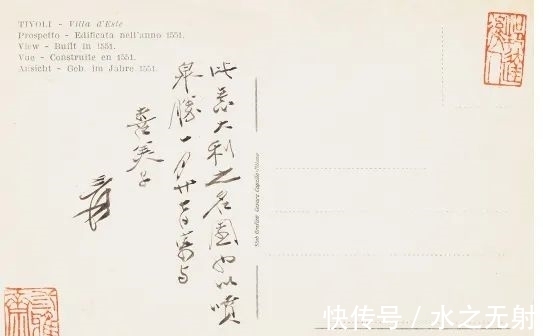 TIVOLI - Villa d'Este
Prospetto - Edificata nell'anno 1551.
View - Built in 1551.
Vue - Construite en 1551.
Ansicht - Geb. im Jahre 1551.
此意大利之名園也以噴
泉勝一月廿寄与
喜美子
爰
Cesare Capello - Milano
快传号 / 水之无射